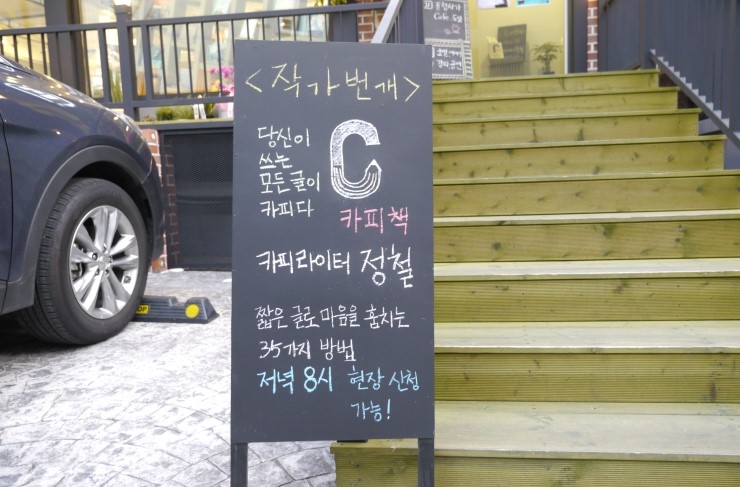 <작가번개>
당신이
쓰는
모든글이
카피다
C
카피책
카피라이터 정철
짧은 글로 마음을 훔치는
35가지 방법
저녁 8시 현장 신청
가능!